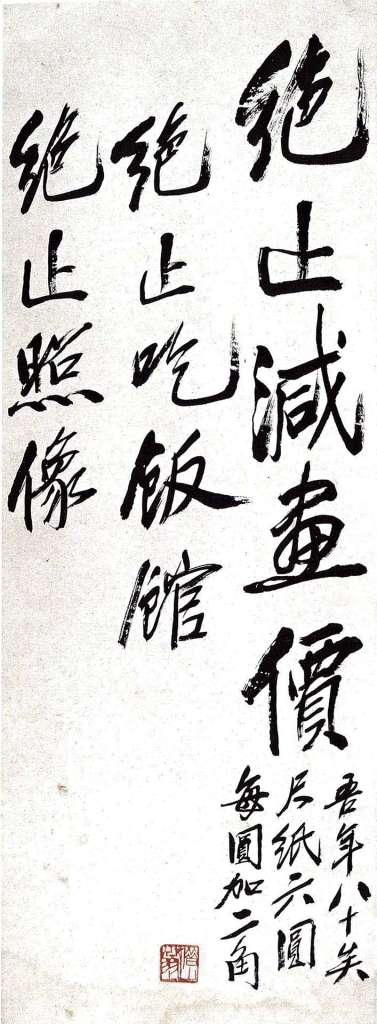 絶止減畫價
吾年八十矣
尺紙六圓
每圓加二角
絶止吃飯館
絶止照像